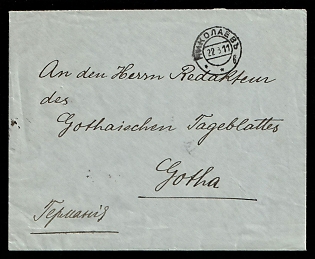 НИКОЛАЕВЪ
22 3 11
An den Herrn Redakteur
des
Gothaischen Tageblattes
Gotha
Германія